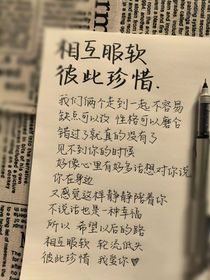 相互服软
彼此珍惜.
我们俩个走到一起 不容易
缺点可以改 性格可以磨合
错过了就真的没有了
见不到你的时候
好像心里有好多话想对你说
你在身边
又感觉这样静静陪着你
不说话也是一种幸福
所以 希望以后的路
相互服软 轮流低头
彼此珍惜 我爱你♡